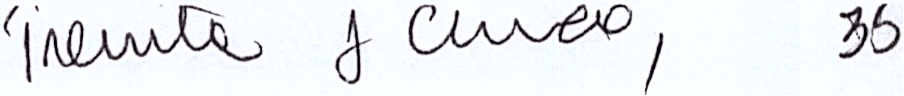 Treinta y Cinco, 35